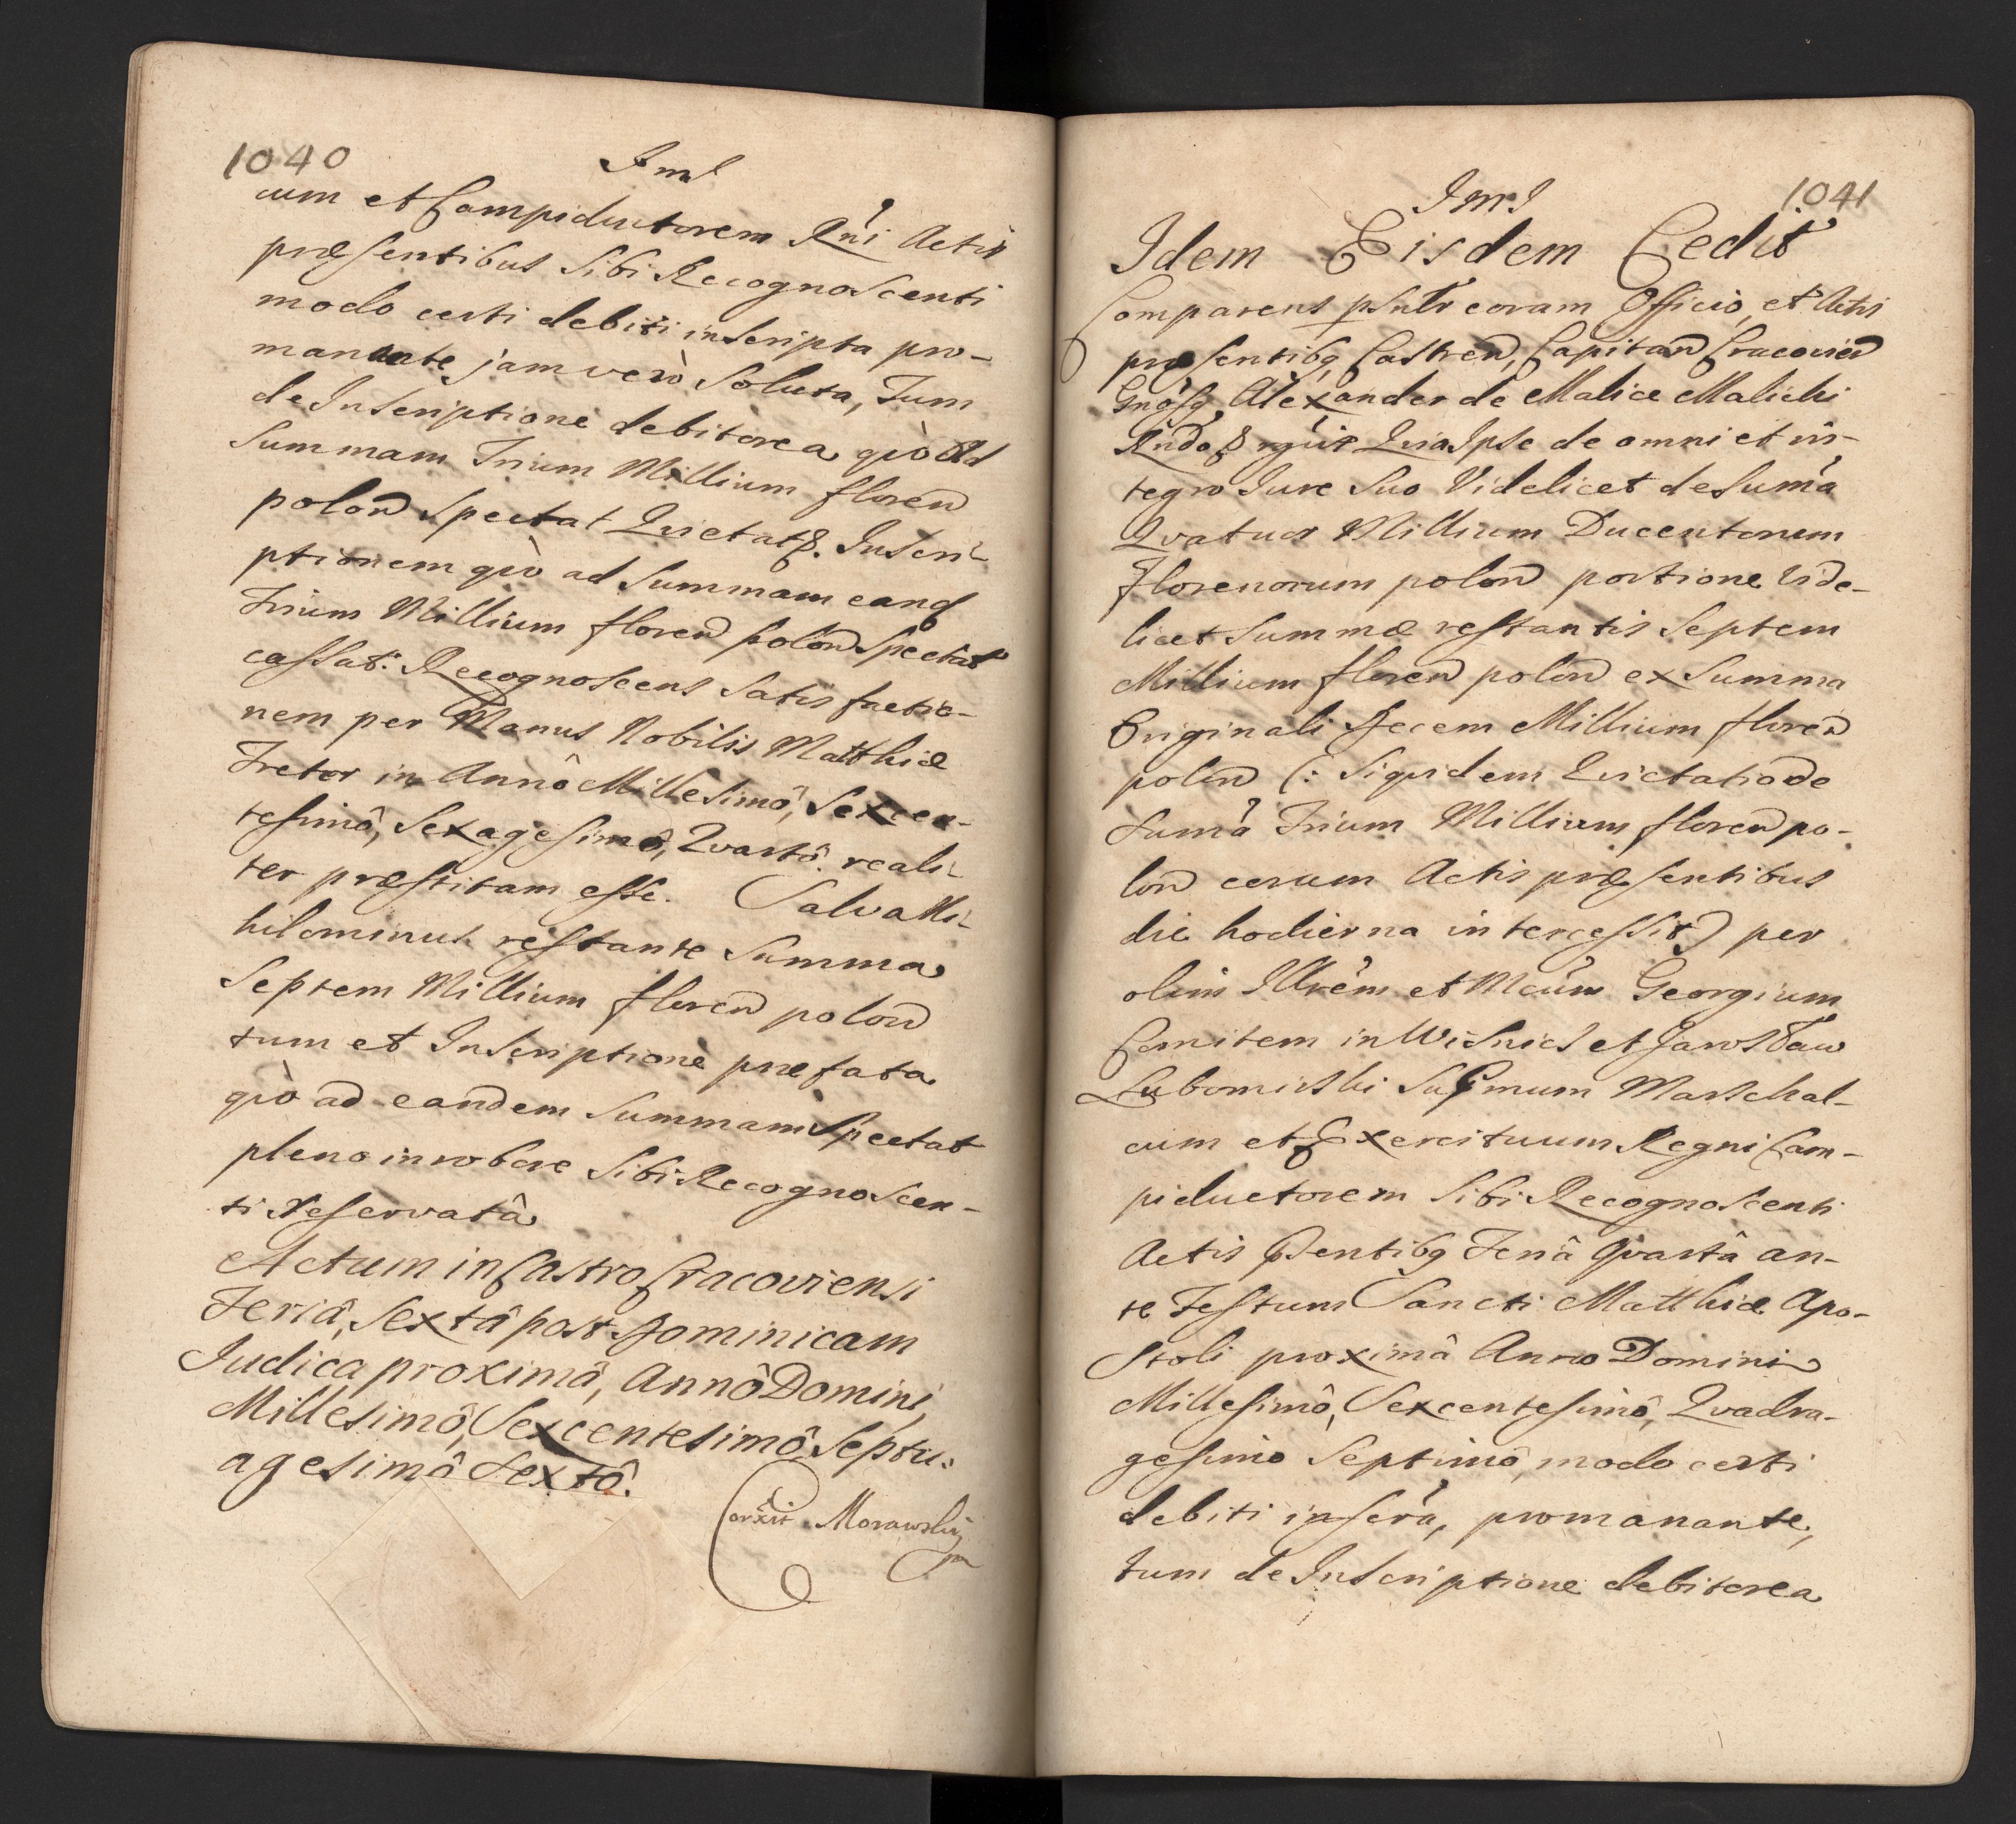 1040
Im
cum et Campiductorem Rńi Actis
præsentibus Sibi Recognoscenti
modo certi debiti inscripta pro-
manante, jam verò Soluta, Tum
de Inscriptione debitorea qùo ad
Summam Trium Millium floren
polon Spectat Qvietat. Inscri-
ptionem qùo ad Summam eand
Trium Millium floren polon Spectat
cassat: Recognoscens Satisfactio-
nem per Manus Nobilis Matthiæ
Treter in Annô Millesimô, Sexcen-
tesimô, Sexagesimô, Qvartô reali-
ter præstitam esse. Salva Ni-
hilominus restante Summa
Septem Millium floren polon
tum et Inscriptione præfata
qùo ad eandem Summam Spectat
pleno in robore Sibi Recognoscen-
ti reservatâ
Actum in Castro Cracoviensi
Feriâ, Sextâ post Dominicam
Iudica proximâ, Annô Domini,
Millesimô, Sexcentesimô, Septu-
agesimô Sextô.
Corxit Morawskij
1041
Im
Idem Eisdem Cedit
Comparens psntr coram Officio, et Actis
præsentibq Castren, Capitan Cracovien
Gnosq Alexander de Malice Malicki
Qvia Ipse de omni et in-
tegro Iure Suo Videlicet de Sumá
Qvatuor Millium Ducentorum
Florenorum polon portione Vide-
licet Summæ restantis Septem
Millium floren polon ex Summa
Originali Decem Millium floren
polon (: Siqvidem Qvietatio de
Sumá Trium Millium floren po-
lon corum Actis præsentibus
die hodierna intercessit) per
olim Illrem et Mcum Georgium
Comitem in Wisnicz et Jarosław
Lubomirski Supmum Marschal-
cum et Exercituum Regni Cam-
piductorem Sibi Recognoscenti
Actis Psentibq Feriâ Qvartâ an-
te Festum Sancti Matthiæ Apo-
stoli proximâ Anno Domini
Millesimô, Sexcentesimô, Qvadra-
gesimo Septimô, modo certi
debiti inscra, promanante,
tum de Inscriptione debitorea